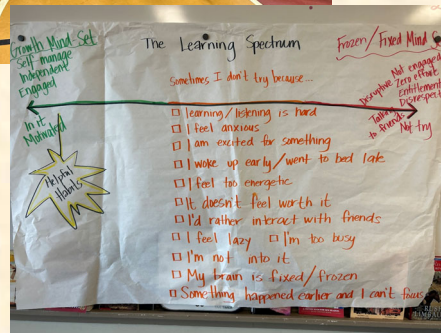 The Learning Spectrum
Growth Mind Set
Self manage
Independent
Engaged
In it
Motivated
Helpful
Habits
Frozen/Fixed Mind S
Not engaged
Zero effort
Entitlement
Disrespect
Disruptive
Talking
to friends
Not try
Sometimes I don't try because...
□ learning/listening is hard
□ I feel anxious
□ I am excited for something
□ I woke up early/went to bed late
□ I feel too energetic
□ It doesn't feel worth it
□ I'd rather interact with friends
□ I feel lazy □ I'm too busy
□ I'm not into it
□ My brain is fixed/frozen
□ Something happened earlier and I can't focus